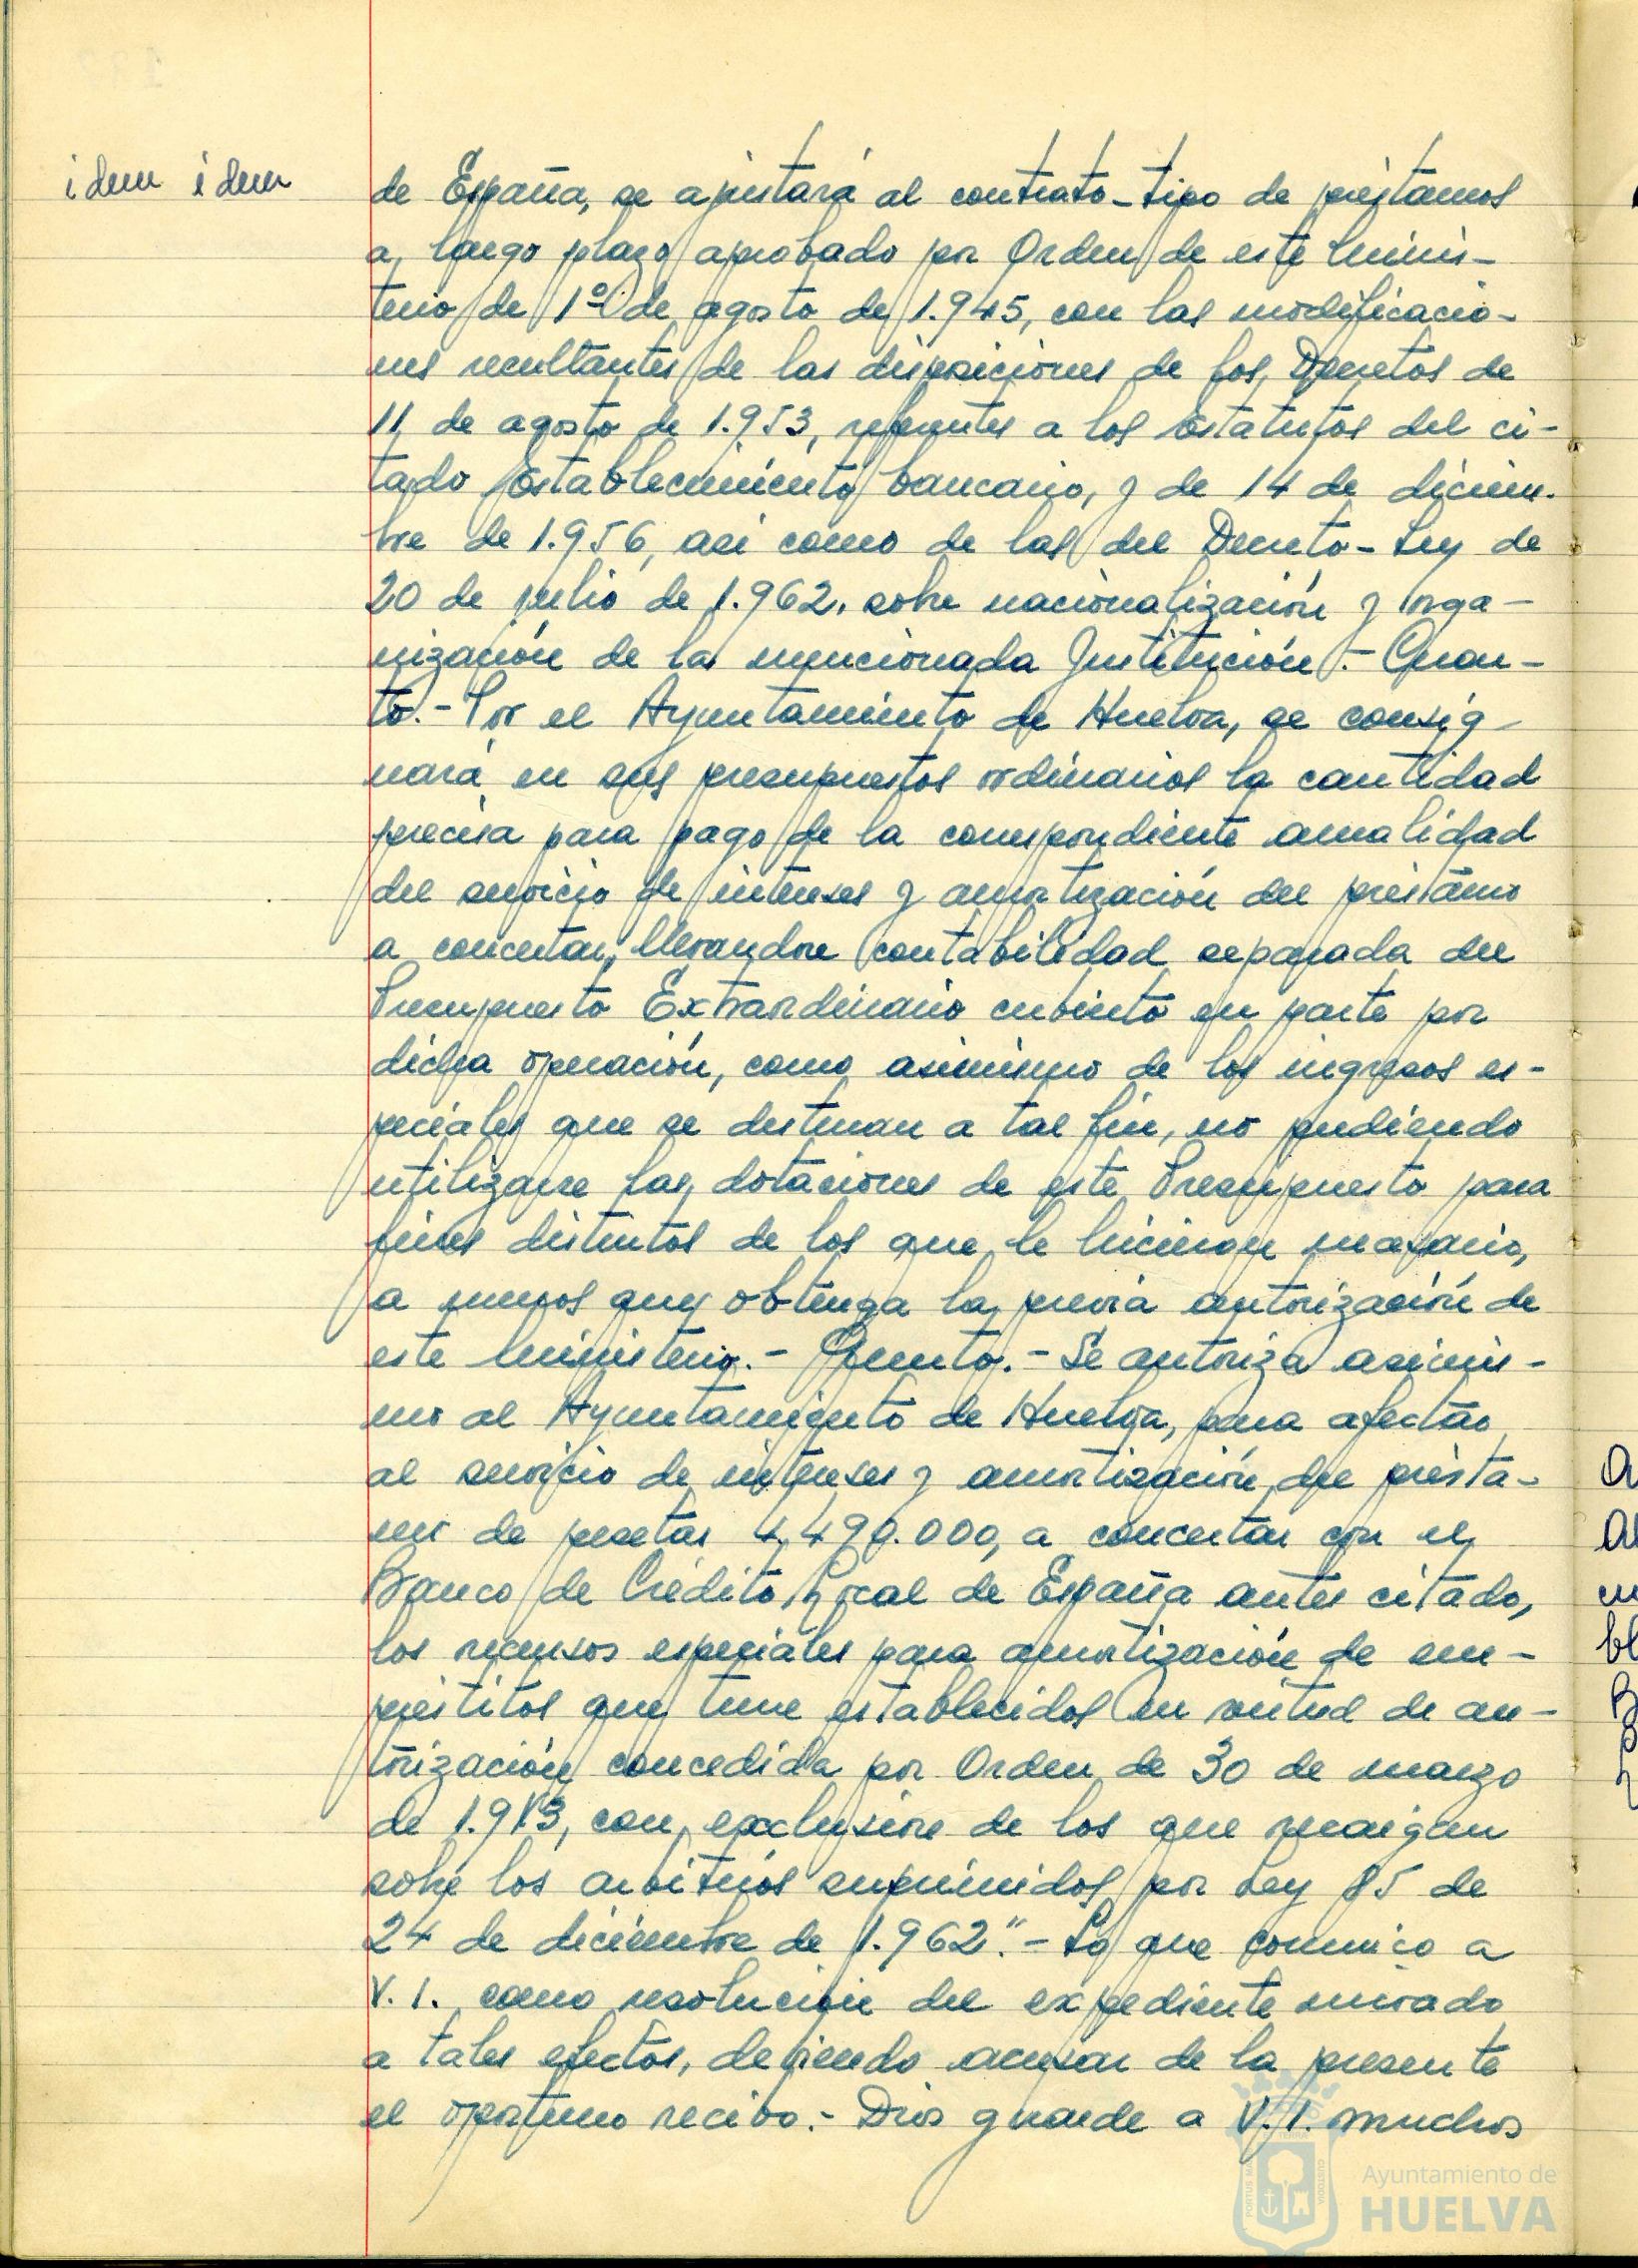 idem idem
de España, se ajustará al contrato-tipo de préstamos
a largo plazo aprobado por Orden de este Minis-
terio de 1º de agosto de 1.945, con las modificacio-
nes resultantes de las disposiciones de los Decretos de
11 de agosto de 1.953, referentes a los Estatutos del ci-
tado Establecimiento bancario, y de 14 de diciem-
bre de 1.956, asi como de las del Decreto-Ley de
20 de julio de 1.962, sobre nacionalización y orga-
nización de la mencionada Institución.- Cuar-
to.- Por el Ayuntamiento de Huelva, se consig-
nará en sus presupuestos ordinarios la cantidad
precisa para pago de la correspondiente anualidad
del servicio de intereses y amortización del préstamo
a concertar, llevandose contabilidad separada del
Presupuesto Extraordinario cubierto en parte por
dicha operación, como asimismo de los ingresos es-
peciales que se destinan a tal fin, no pudiendo
utilizarse las dotaciones de este Presupuesto para
fines distintos de los que le hicieron necesario,
a menos que obtenga la previa autorización de
este Ministerio.- Quinto.- Se autoriza asimis-
mo al Ayuntamiento de Huelva, para afectar
al servicio de intereses y amortización del présta-
mo de pesetas 4.490.000, a concertar con el
Banco de Crédito Local de España antes citado,
los recursos especiales para amortización de em-
préstitos que tiene establecidos en virtud de au-
torización concedida por Orden de 30 de marzo
de con exclusión de los que recaigan
sobre los arbitrios suprimidos por Ley 85 de
24 de diciembre de 1.962".- Lo que comunico a
V. I. como resolución del expediente enviado
a tales efectos, debiendo acusar de la presente
el oportuno recibo.- Dios guarde a V. I. muchos
Ayuntamiento de
HUELVA